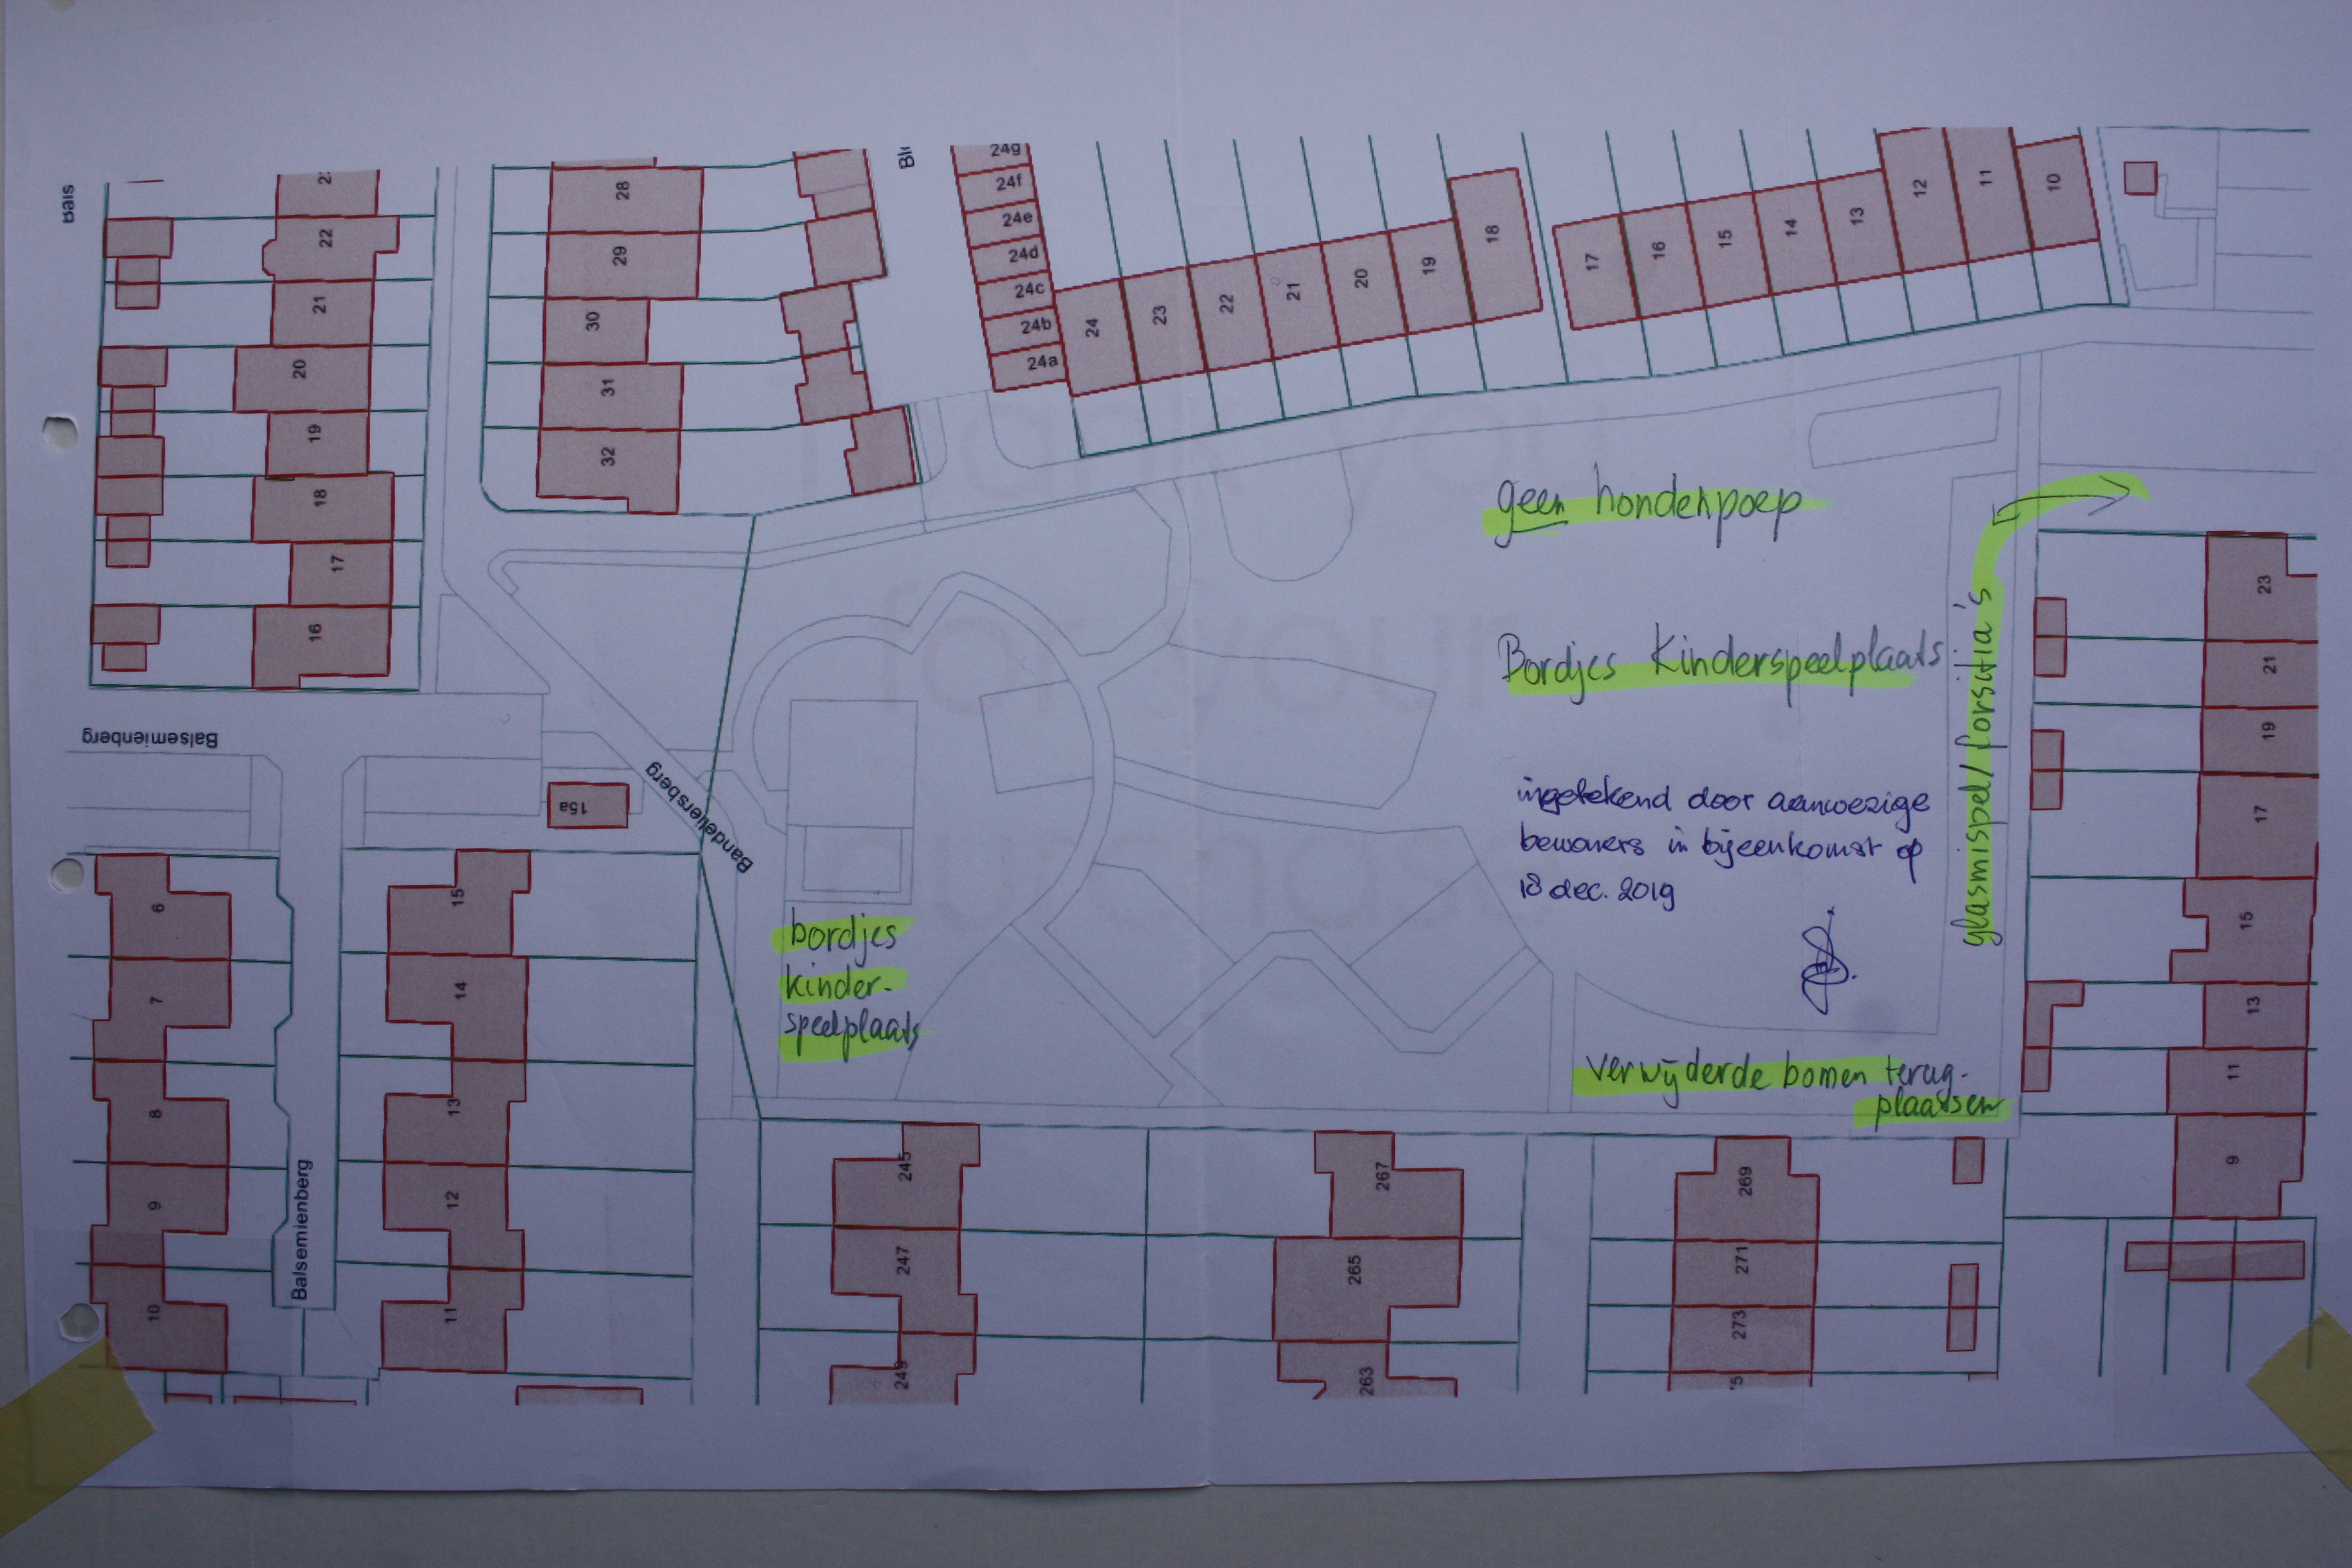 24g
24f
24e
24d
24c
24b
24a
24
23
22
21
20
19
18
17
16
15
14
13
12
11
10
22
21
20
19
18
17
16
28
29
30
31
32
Balsemienberg
15a
Bandeliersberg
geen hondenpoep
Bordjes Kinderspeelplaats
ingetekend door aanwezige
bewoners in bijeenkomst op
18 dec. 2019
glasmispel/forsitia's
bordjes
kinder-
speelplaats
verwijderde bomen terug-
plaatsen
23
21
19
17
15
13
11
9
6
7
8
9
10
Balsemienberg
15
14
13
12
11
245
247
249
267
265
263
269
271
273